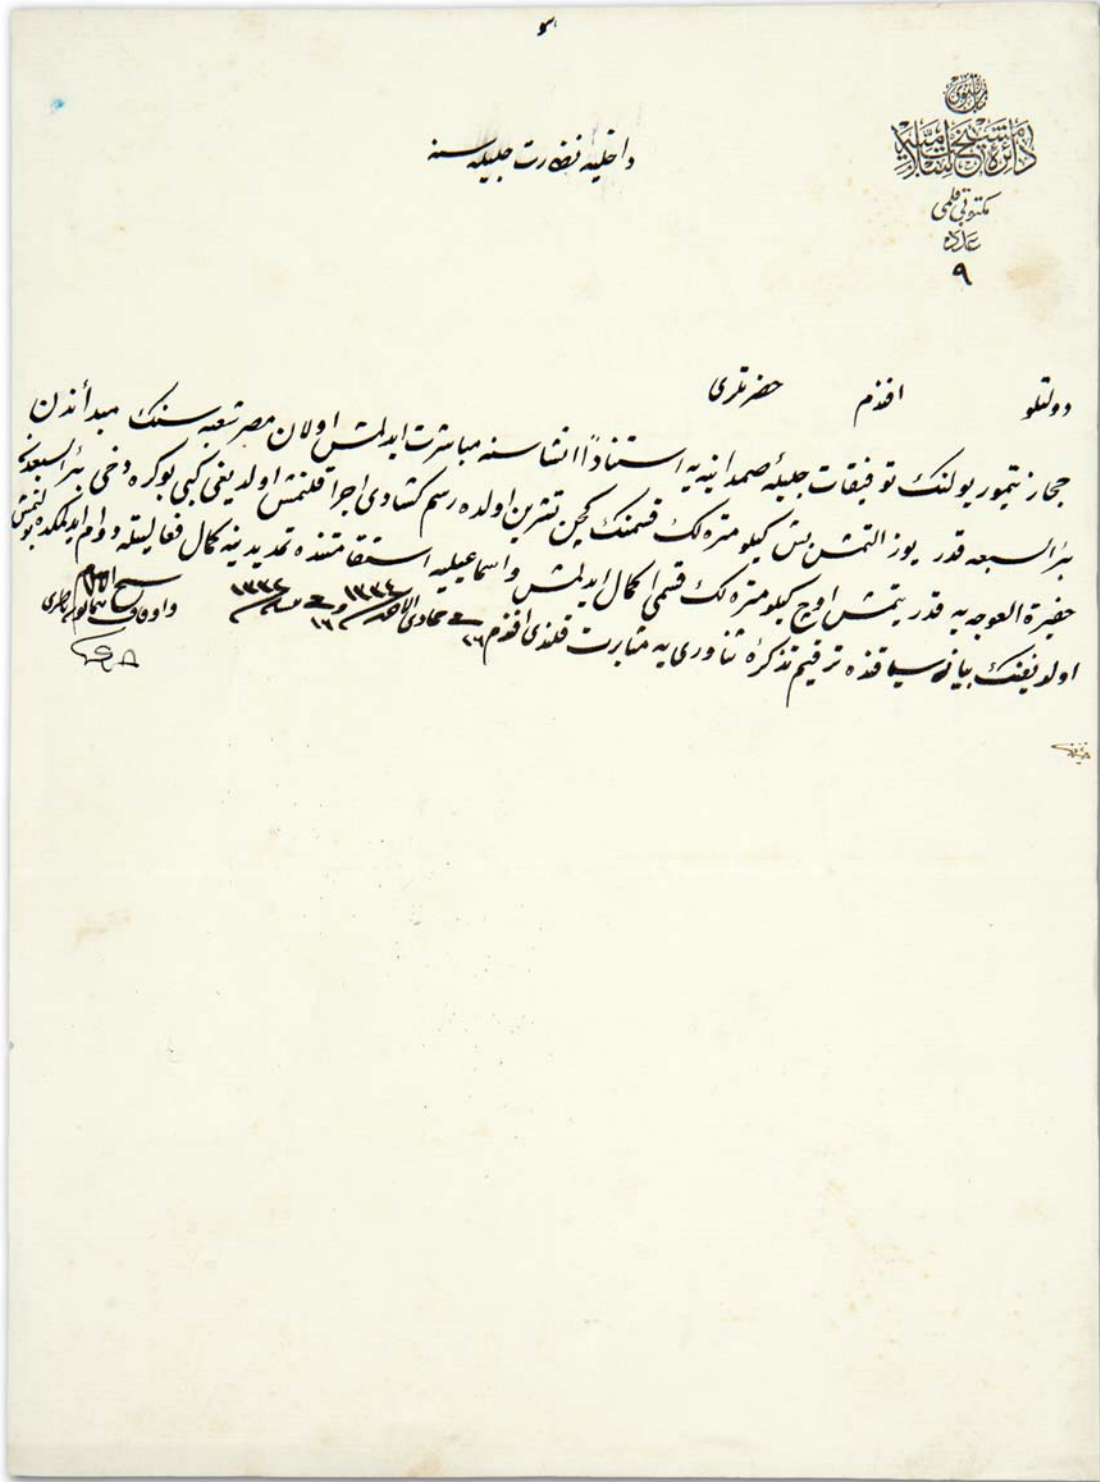 باب فتوی
دائره مشیخت اسلامیه
مكتوبی قلمی
عدد
٩
داخلیه نظارت جلیله سنه
دولتلو افندم حضرتلری
حجاز تیمور یولنك توفیقات جلیلهٔ صمدانیه یه استناداً انشاسنه مباشرت ایدلمش اولان مصر شعبه سنك مبدأندن
بئرالسبعه قدر یوز التمش بش كیلومتره لك قسمنك كچن تشرین اولده رسم كشادی اجرا قلنمش اولدیغی كبی بو كره دخی بئرالسبعدن
حفیرة العوجه یه قدر یتمش اوچ كیلومتره لك قسمی اكمال ایدلمش و اسماعیلیه استقامتنده تمدیدینه كمال فعالیتله دوام ایدلمكده بولنمش
اولدیغنك بیانی سیاقنده ترقیم تذكرهٔ ثناوری یه مثابرت قلندی افندم فی ٢٦ جمادی الاخره ١٣٣٤ و فی ١٦ سنه ١٣٣٢
شیخ الاسلام
و اوقاف همایون ناظری